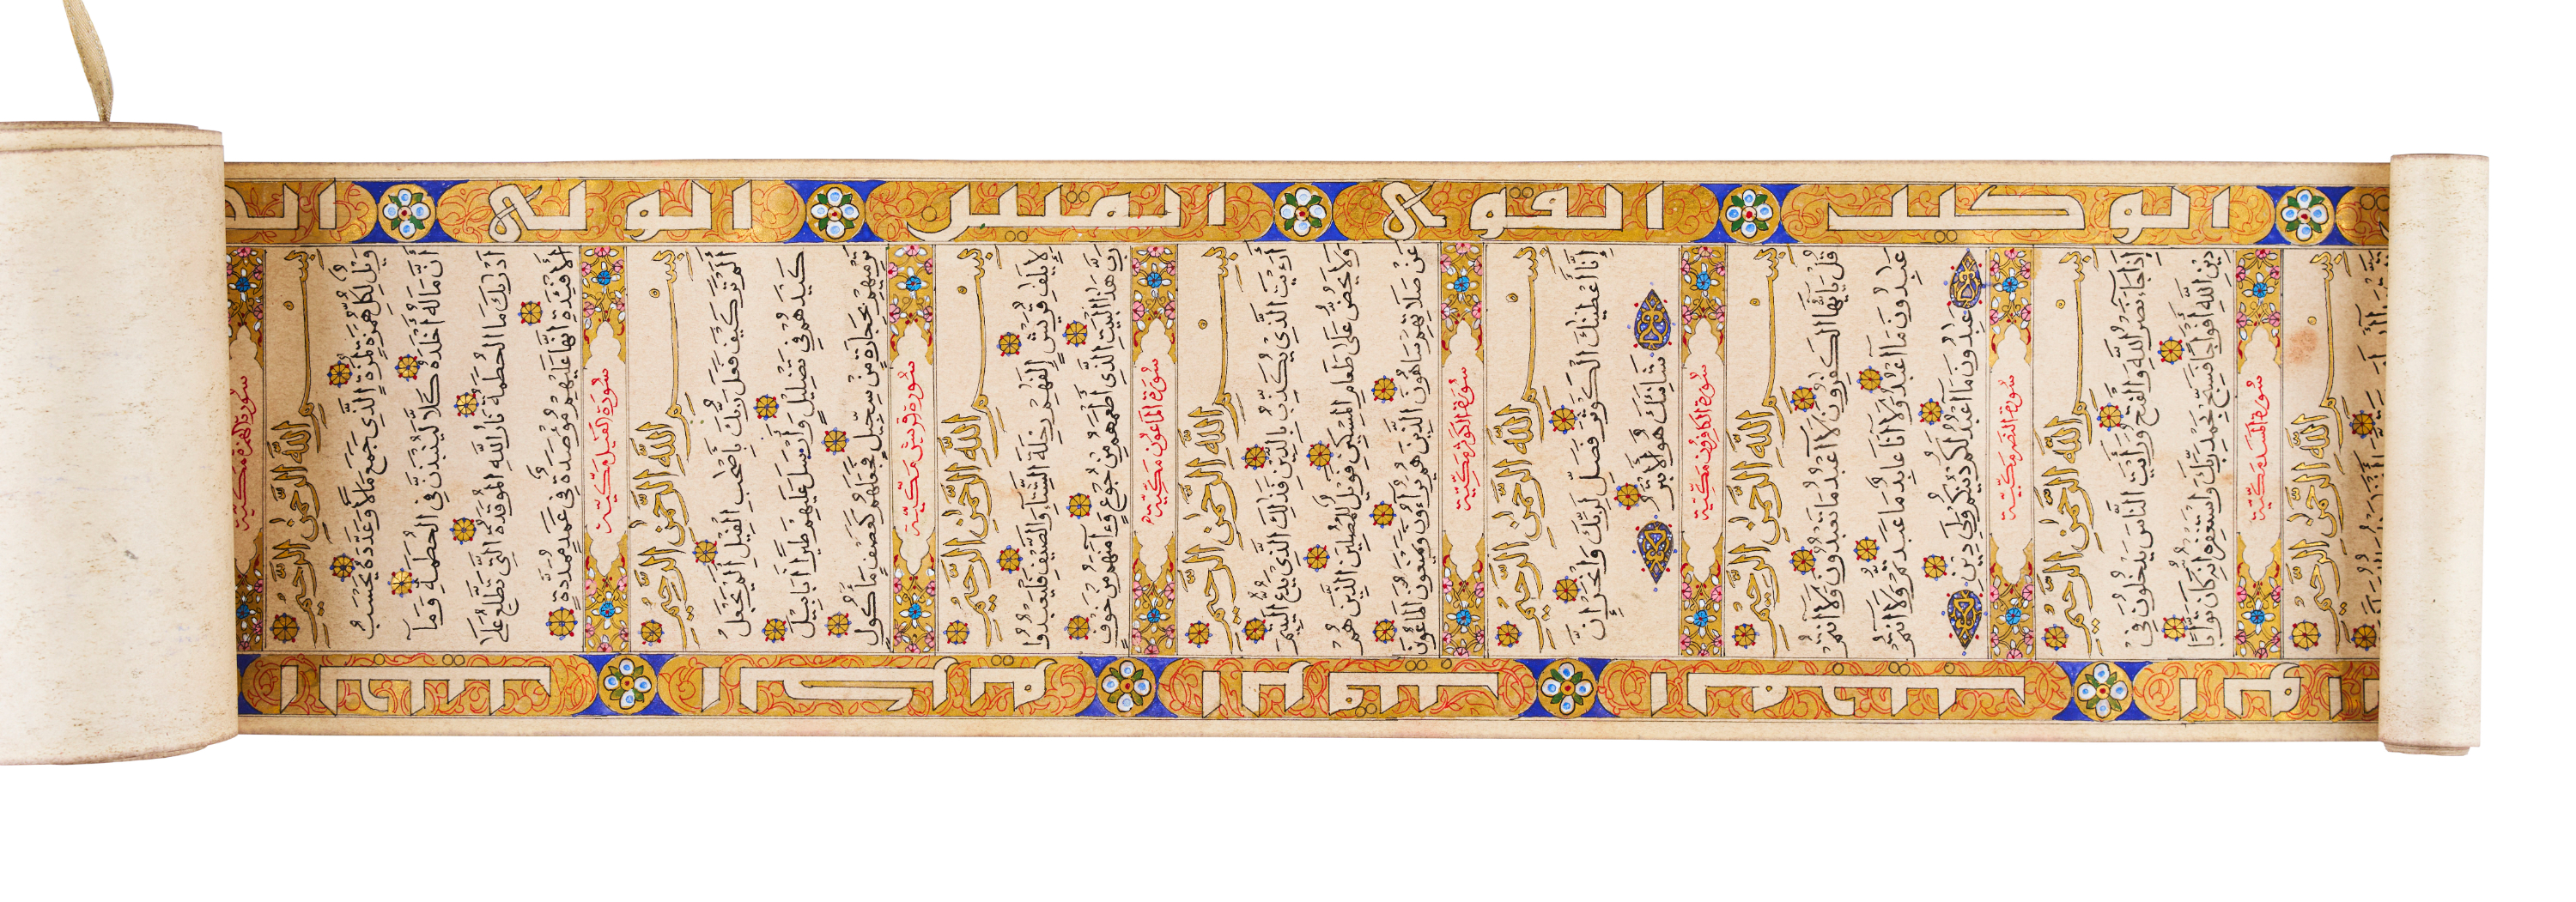 سورة الهمزة مكية
بسم الله الرحمن الرحيم
ويل لكل همزة لمزة الذي جمع مالا وعدده يحسب
أن ماله أخلده كلا لينبذن في الحطمة وما
أدريك ما الحطمة نار الله الموقدة التي تطلع على
الأفئدة إنها عليهم مؤصدة في عمد ممددة
سورة الفيل مكية
بسم الله الرحمن الرحيم
ألم تر كيف فعل ربك بأصحب الفيل ألم يجعل
كيدهم في تضليل وأرسل عليهم طيرا أبابيل
ترميهم بحجارة من سجيل فجعلهم كعصف مأكول
سورة قريش مكية
بسم الله الرحمن الرحيم
لإيلف قريش إلفهم رحلة الشتاء والصيف فليعبدوا
رب هذا البيت الذي أطعمهم من جوع وءامنهم من خوف
سورة الماعون مكية
بسم الله الرحمن الرحيم
أرءيت الذي يكذب بالدين فذلك الذي يدع اليتيم
ولا يحض على طعام المسكين فويل للمصلين الذين هم
عن صلاتهم ساهون الذين هم يراءون ويمنعون الماعون
سورة الكوثر مكية
بسم الله الرحمن الرحيم
إنا أعطينك الكوثر فصل لربك وانحر إن
شانئك هو الأبتر
سورة الكافرون مكية
بسم الله الرحمن الرحيم
قل يأيها الكفرون لا أعبد ما تعبدون ولا أنتم
عبدون ما أعبد ولا أنا عابد ما عبدتم ولا أنتم
عبدون ما أعبد لكم دينكم ولي دين
سورة النصر مكية
بسم الله الرحمن الرحيم
إذا جاء نصر الله والفتح ورأيت الناس يدخلون في
دين الله أفواجا فسبح بحمد ربك واستغفره إنه كان توابا
سورة المسد مكية
بسم الله الرحمن الرحيم
الولي
المتين
القوي
الوكيل